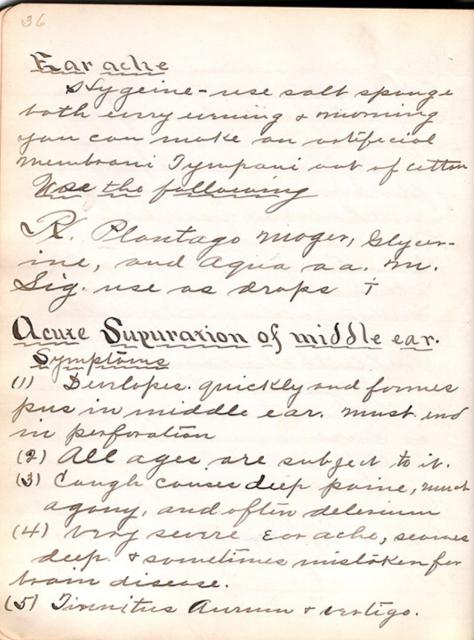 36
Ear ache
Hygeine - use salt sponge
bath every evening & morning
you can make an artificial
membrani Tympani out of cotton
Use the following
Rx. Plantago Moger, Glycer-
ine, and Aqua aa. m.
Sig. use as drops
Acute Supuration of middle ear.
Symptoms
(1) Devlopes quickly and formes
pus in middle ear. must end
in perforation
(2) All ages are subject to it.
(3) Cough causes deep paine, much
agony, and often delerium
(4) Very severe Ear ache, seames
deep & sometimes mistaken for
brain disease.
(5) Tinnitus Aurum & vertigo.